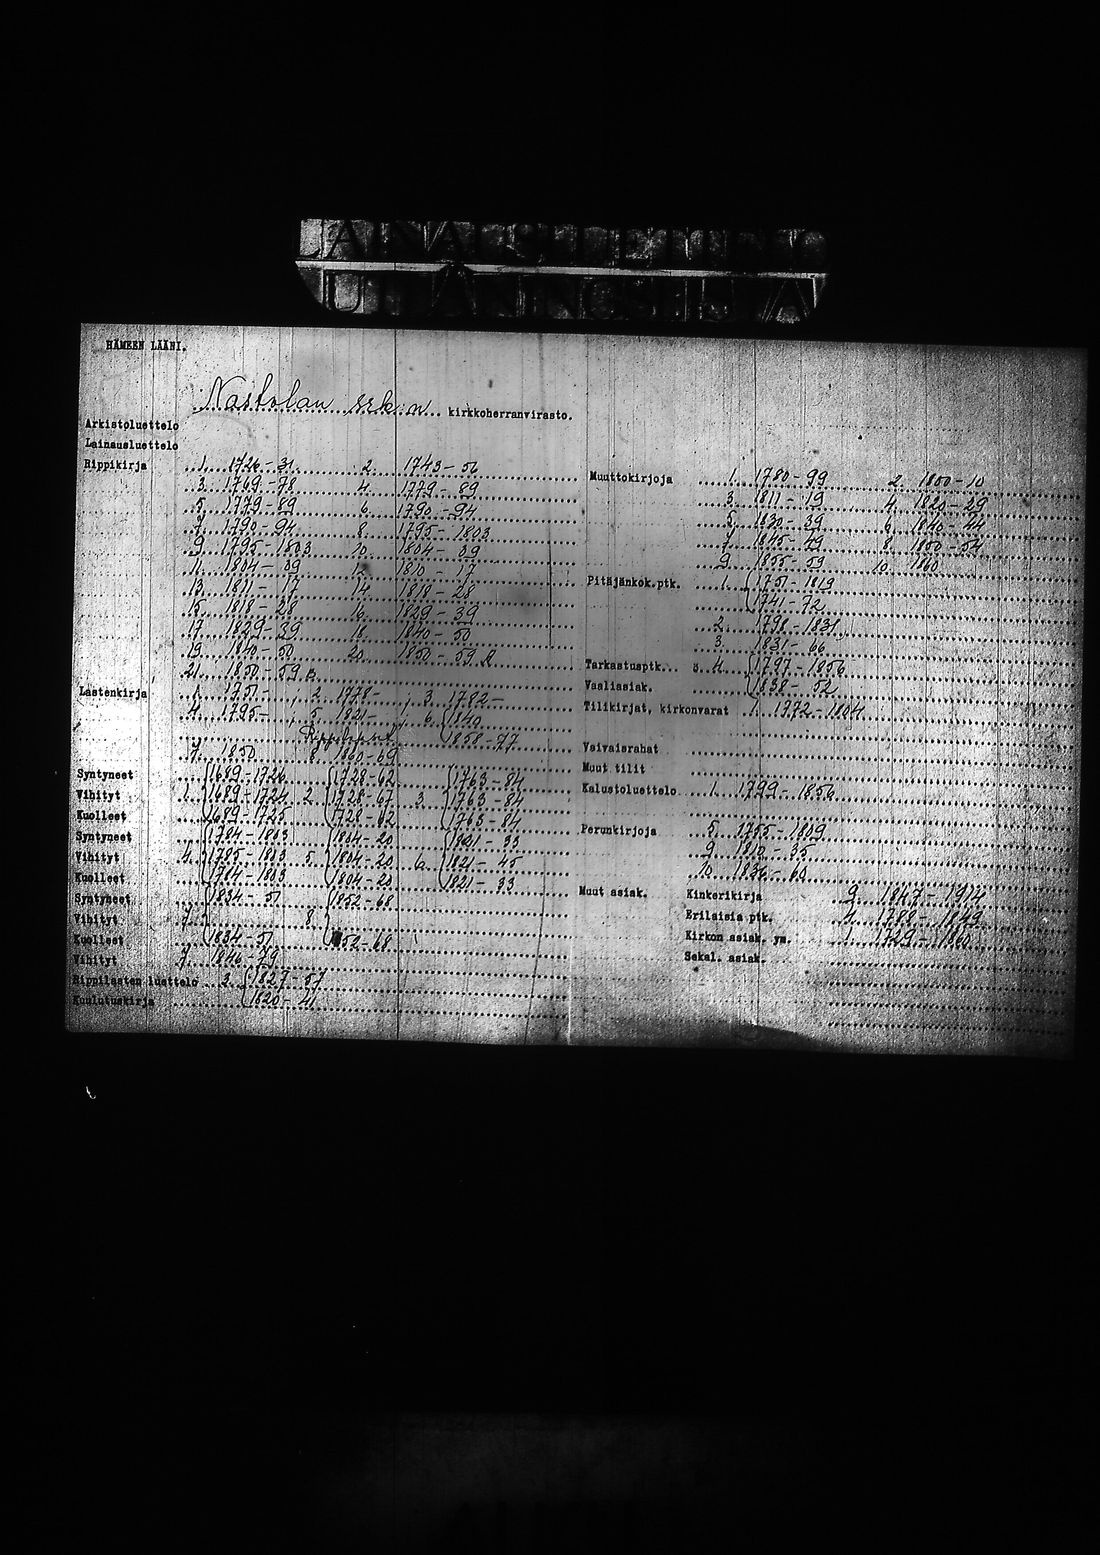 LAINAUSLUETTELO
UTLÅNINGSLISTA
HÄMEEN LÄÄNI.
Nastolan srk:n kirkkoherranvirasto.
Arkistoluettelo
Lainausluettelo
Rippikirja 1. 1726-31 2. 1743-56
3. 1769-78 4. 1779-89
5. 1779-89 6. 1790-94
7. 1790-94 8. 1795-1803
9. 1795-1803 10. 1804-09
11. 1804-09 12. 1810-17
13. 1811-17 14. 1818-28
15. 1818-28 16. 1829-39
17. 1829-39 18. 1840-50
19. 1840-50 20. 1850-59 A
21. 1850-59 B
Lastenkirja 1. 1751- ; 2. 1778- ; 3. 1782-
4. 1795- ; 5. 1821- ; 6. 1840
1858-77
7. 1850 8. 1860-69
Syntyneet 1689-1726 1728-62 1763-84
Vihityt 1. 1689-1724 2. 1728-67 3. 1763-84
Kuolleet 1689-1725 1728-62 1763-84
Syntyneet 1784-1803 1804-20 1821-33
Vihityt 4. 1785-1803 5. 1804-20 6. 1821-45
Kuolleet 1784-1803 1804-20 1821-33
Syntyneet 1834-51 1852-68
Vihityt 7. 8.
Kuolleet 1834-51 1852-68
Vihityt 7. 1846-79
Rippilasten luettelo 3. 1827-57
Kuulutuskirja 1820-41
Muuttokirjoja 1. 1780-99 2. 1800-10
3. 1811-19 4. 1820-29
5. 1830-39 6. 1840-44
7. 1845-49 8. 1850-54
9. 1855-59 10. 1860
Pitäjänkok.ptk. 1. 1751-1819
1741-72
2. 1798-1831
3. 1831-66
Tarkastusptk. 4. 1797-1856
Vaaliasiak. 1838-52
Tilikirjat, kirkonvarat 1. 1772-1804
Vaivaisrahat
Muut tilit
Kalustoluettelo 1. 1799-1856
Perunkirjoja 5. 1755-1809
9. 1810-35
10. 1836-60
Muut asiak. Kinkerikirja 9. 1847-1914
Erilaisia ptk. 4. 1788-1849
Kirkon asiak. ym. 1. 1729-1860
Sekal. asiak.